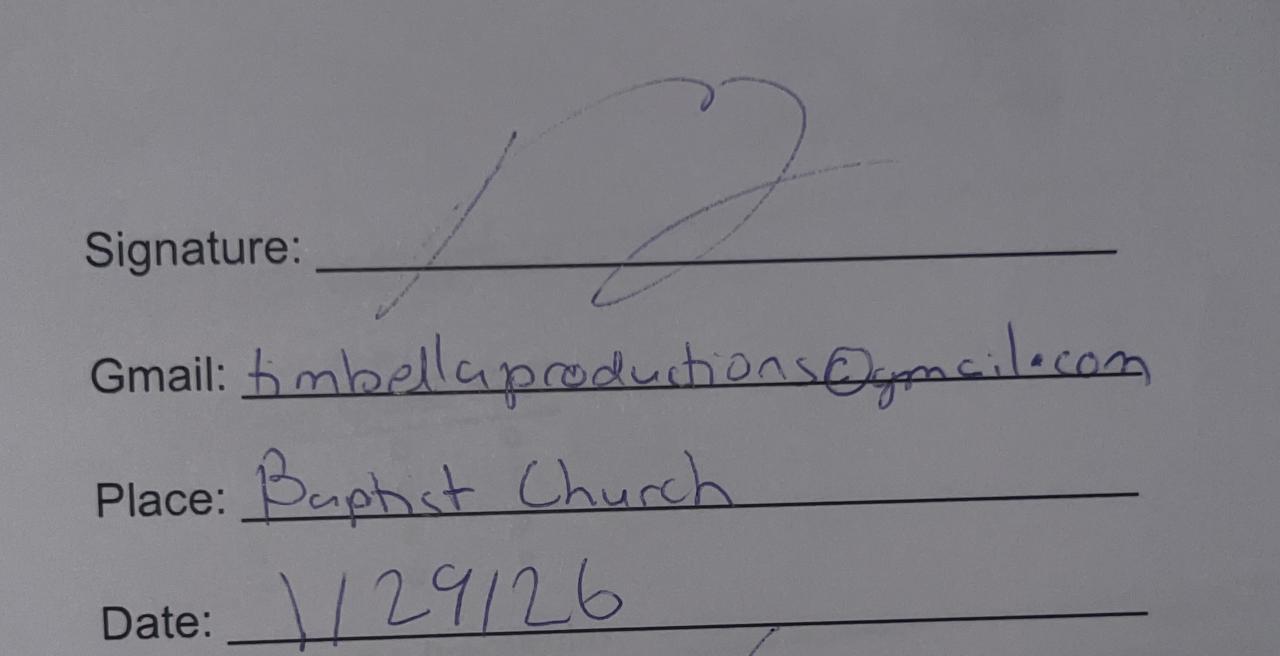 Signature:
Gmail: timbellaproductions@gmail.com
Place: Baptist Church
Date: 1/29/26